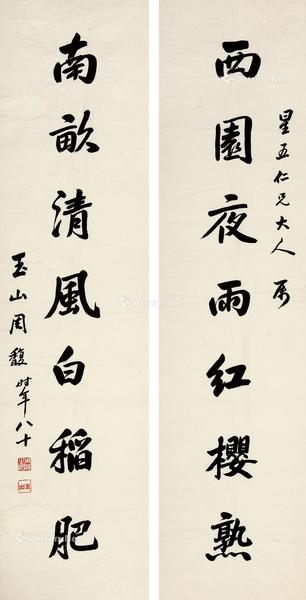 星五仁兄大人属
西園夜雨紅櫻熟
南畝清風白稻肥
玉山周馥時年八十